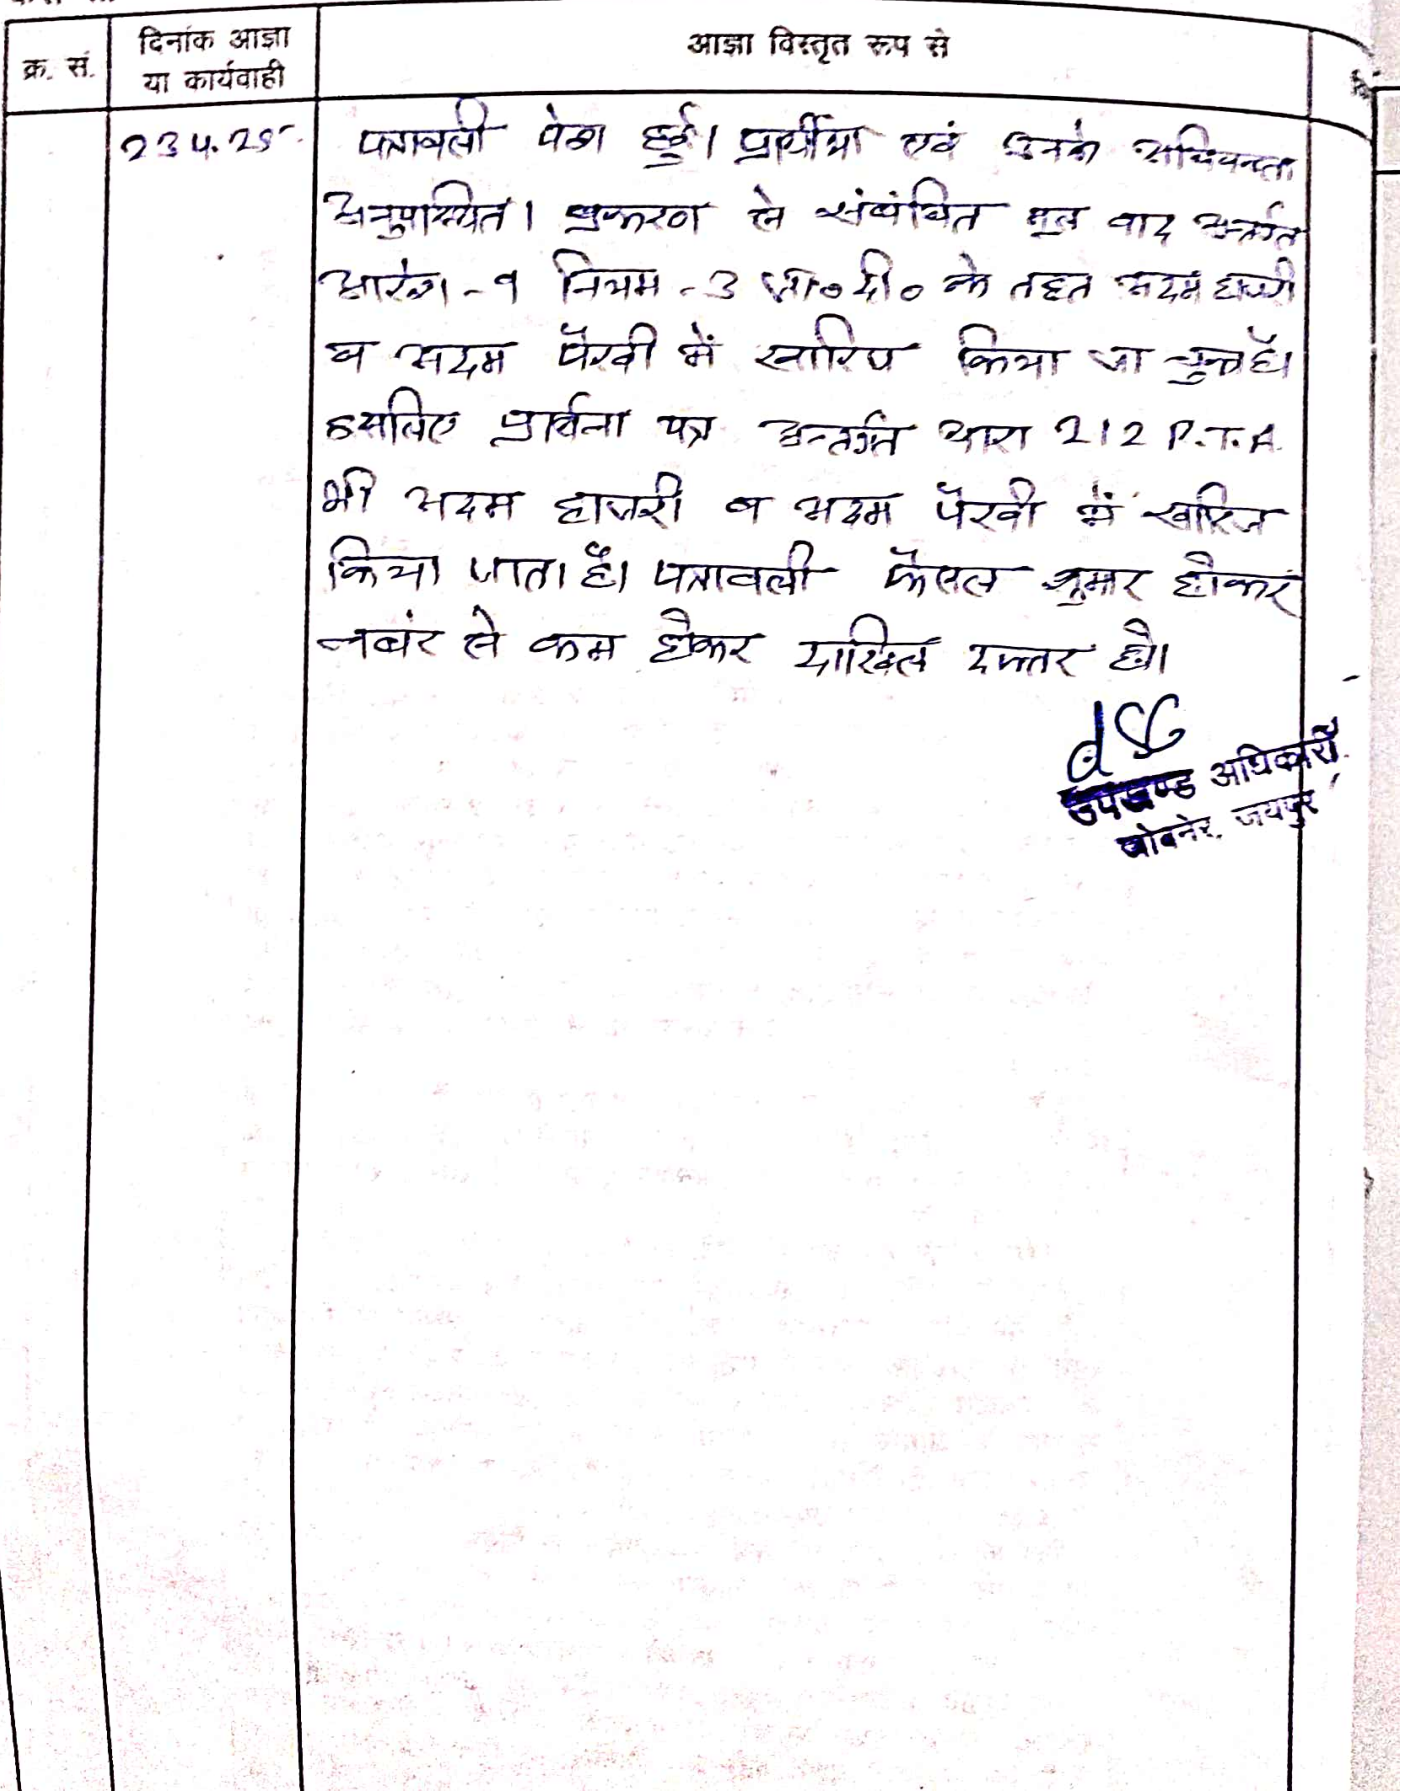 क्र. सं.
दिनांक आज्ञा
या कार्यवाही
आज्ञा विस्तृत रूप से
23.4.25
पत्रावली पेश हुई। प्रार्थीया एवं उनके अधिवक्ता
अनुपस्थित। प्रकरण से संबंधित मूल वाद अन्तर्गत
आदेश-9 नियम-3 के तहत अदम हाजरी
व अदम पैरवी में खारिज किया जा चुका है।
इसलिए प्रार्थना पत्र अन्तर्गत धारा 212 R.T.A.
भी अदम हाजरी व अदम पैरवी में खारिज
किया जाता है। पत्रावली फैसल शुमार होकर
नबंर से कम होकर दाखिल दफ्तर हो।
उपखण्ड अधिकारी
जोबनेर, जयपुर